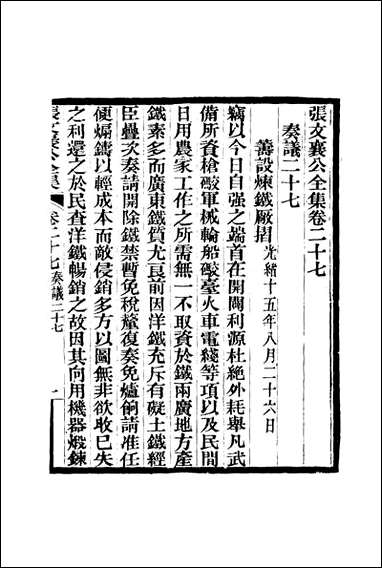 張文襄公全集卷二十七
奏議二十七
籌設煉鐵厰摺光緒十五年八月二十六日
竊以今日自强之端首在開闢利源杜絶外耗舉凡武
備所資槍礮軍械輪船礮臺火車電綫等項以及民間
日用農家工作之所需無一不取資於鐵兩廣地方產
鐵素多而廣東鐵質尤良前因洋鐵充斥有礙土鐵經
臣疊次奏請開除鐵禁暫免稅釐復奏免爐餉請准任
便煽鑄以輕成本而敵侵銷多方以圖無非欲收已失
之利還之於民查洋鐵暢銷之故因其向用機器煅鍊
張文襄公全集
卷二十七奏議二十七
一